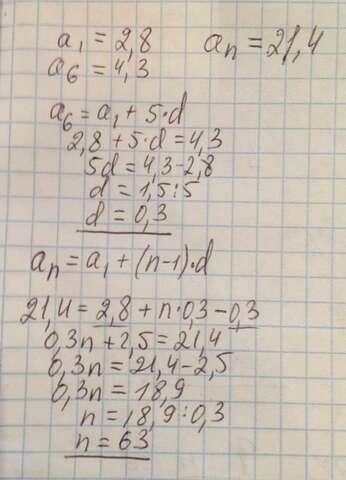 a₁ = 2,8
aₙ = 21,4
a₆ = 4,3
a₆ = a₁ + 5·d
2,8 + 5·d = 4,3
5d = 4,3-2,8
d = 1,5:5
d = 0,3
aₙ = a₁ + (n-1)·d
21,4 = 2,8 + n·0,3 - 0,3
0,3n + 2,5 = 21,4
0,3n = 21,4 - 2,5
0,3n = 18,9
n = 18,9:0,3
n = 63